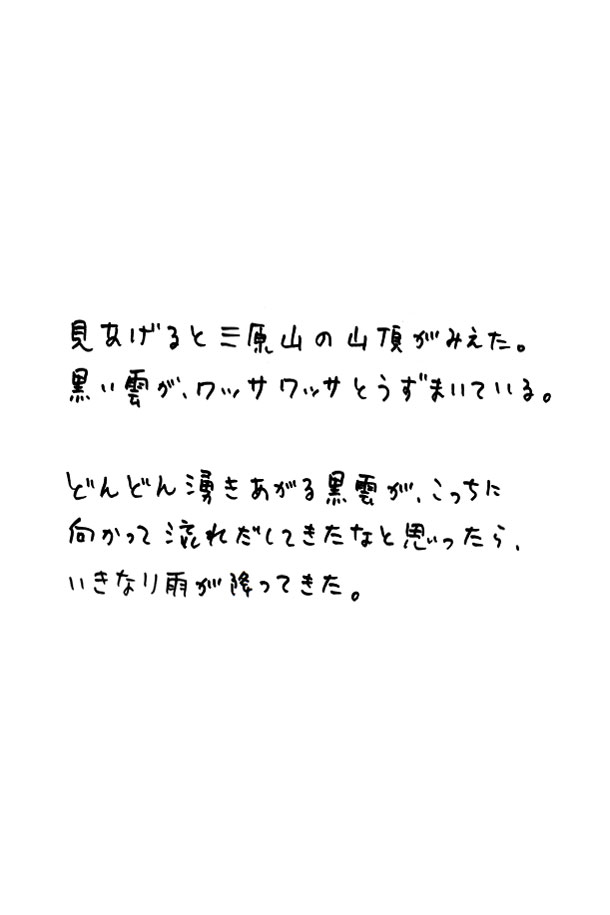 見あげると三原山の山頂がみえた。
黒い雲が、ワッサワッサとうずまいている。
どんどん湧きあがる黒雲が、こっちに
向かって流れだしてきたなと思ったら、
いきなり雨が降ってきた。